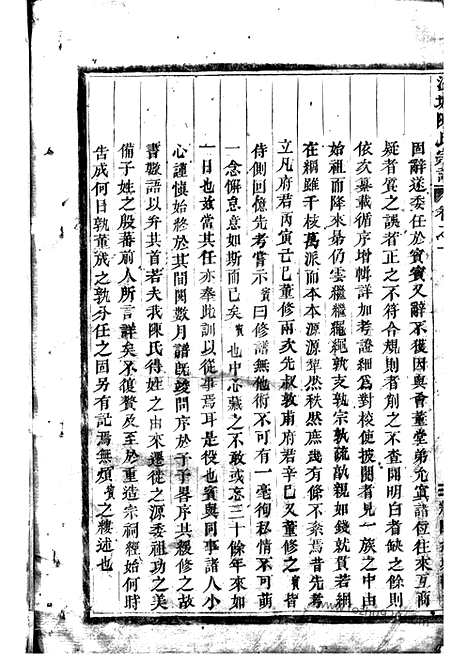 陳氏宗譜 卷之一
固辭遂委任於賓賓又辭不獲因與香董堂弟允賓諸位往來互商
疑者質之誤者正之不符合規則者創之不查開明白者缺之餘則
依次纂載循序增輯詳加考證細爲對校使披閱者見一族之中由
始祖而降來昴仍雲繼繼繩繩孰支孰宗孰疏孰親如錢就貫若網
在綱雖千枝萬派而本本源源犂然秩然庶幾有條不紊焉昔先考
立凡府君丙寅己巳董修兩次先叔敦南府君辛巳又董修之賓皆
侍側回憶先考嘗示賓曰修譜無他術不可有一毫徇私不可萌
一念懈怠意如斯而已矣賓也中心藏之不敢或忘三十餘年來如
一日也故當其任亦奉此訓以從事焉耳是役也賓與同事諸人小
心謹愼始終於其間閱數月譜旣竣問序於予予畧序其綴修之故
書數語以弁其首若夫我陳氏得姓之由來遷徙之源委祖功之美
備子姓之殷蕃前人所言詳矣不復贅及至於重造宗祠經始何
告成何日孰董厥之孰分任之固另有記焉無煩賓之縷述也